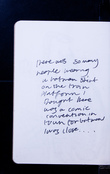 There was so many
people wearing
a batman shirt
on the train
platform!
Thought there
was a comic
convention in
town (or batman
was close....